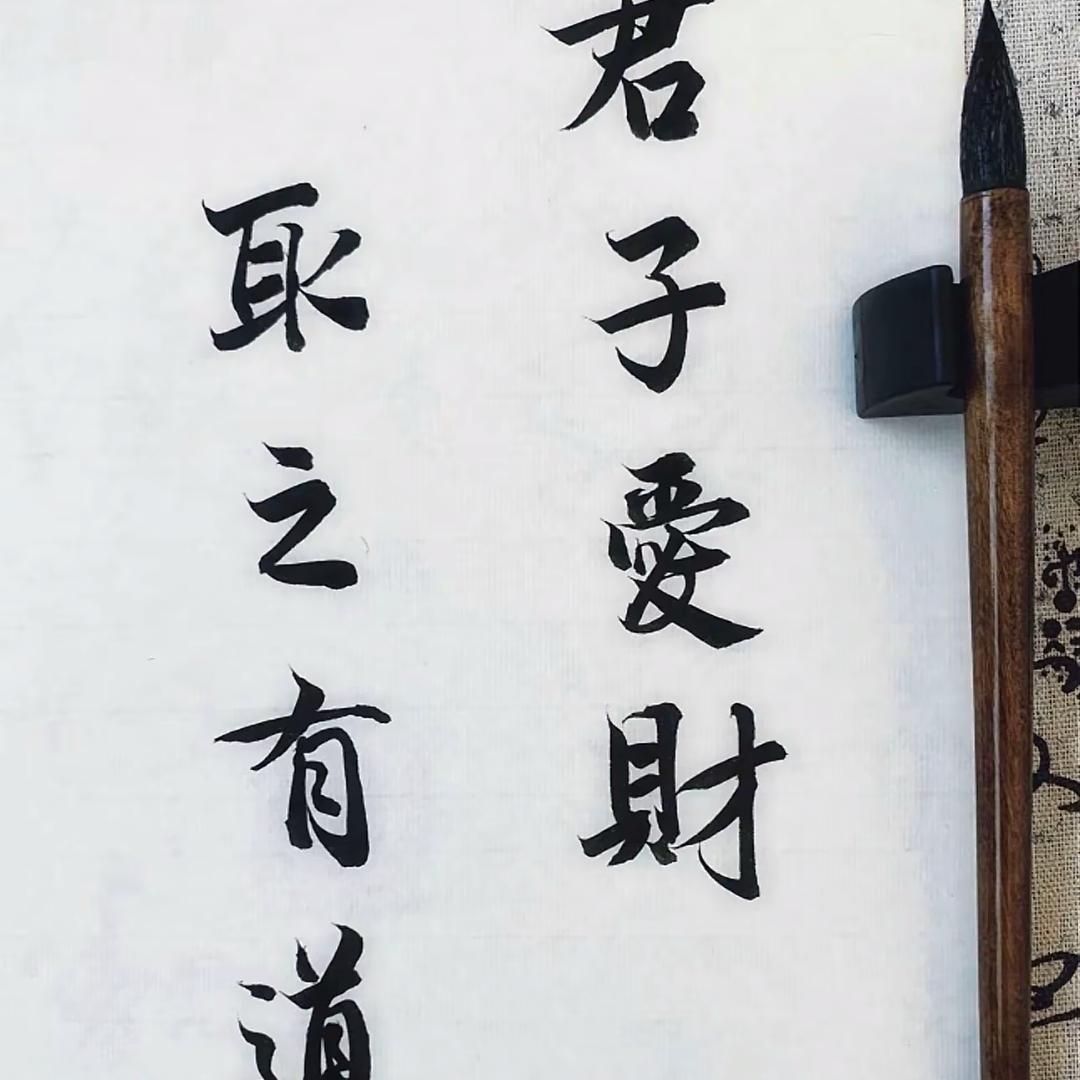 君子愛財
取之有道